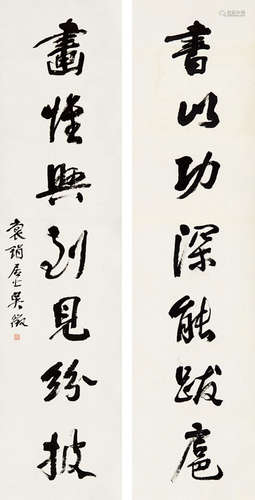 書以功深能跋扈
畫惟興到見紛披
袌鋗居士吳徵